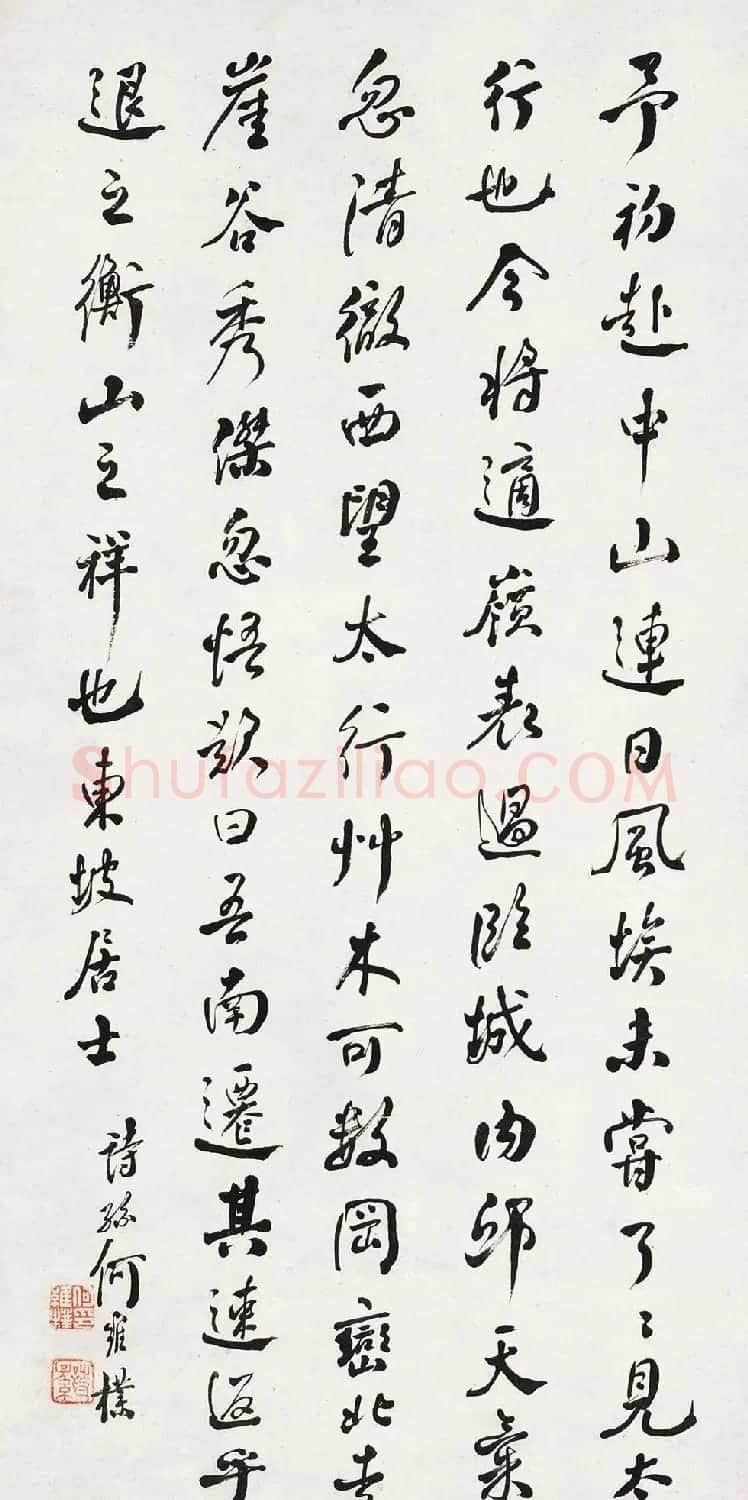 予初赴中山連日風埃未嘗了〻見太
行也今將適嶺表過臨城內邱天氣
忽清徹西望太行艸木可數岡巒北走
崖谷秀傑忽悟歎曰吾南遷其速返乎
退之衡山之祥也東坡居士
詩孫何維樸
Shufaziliao.COM